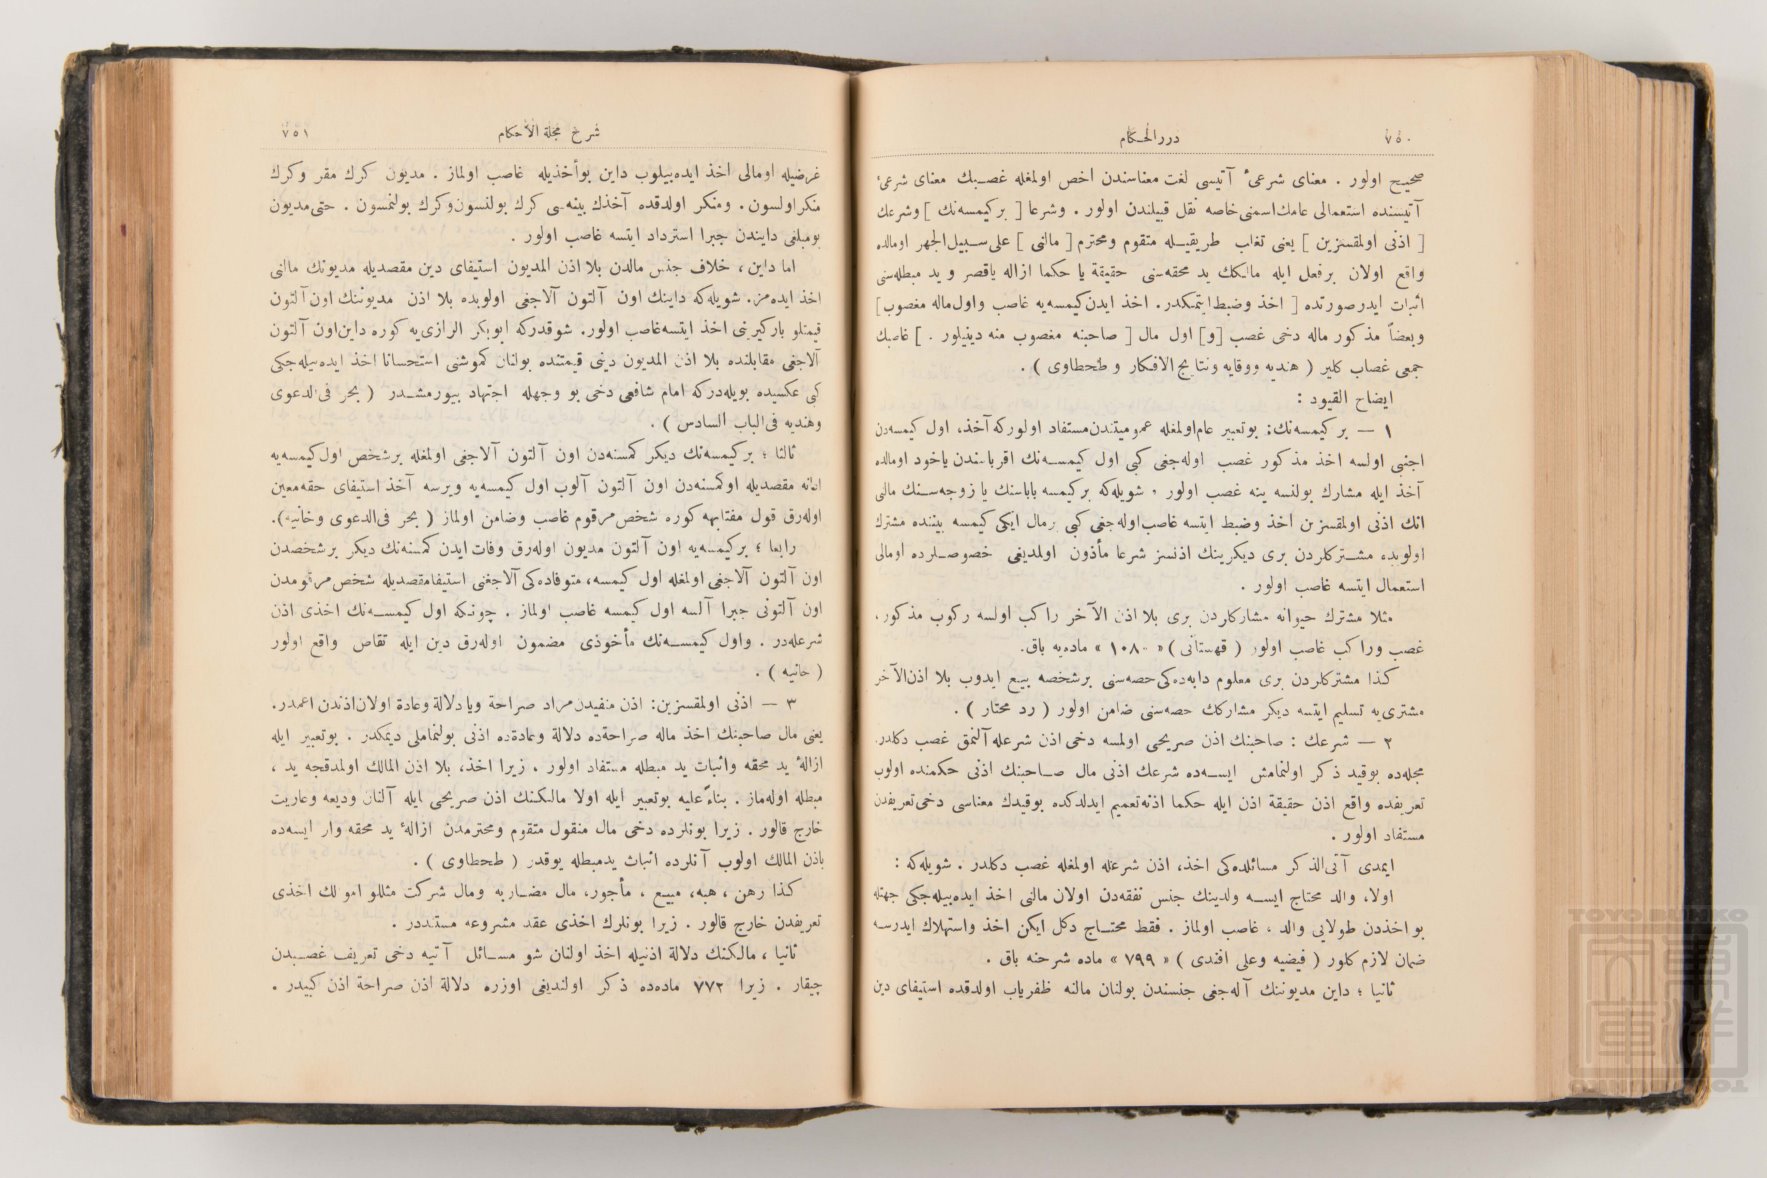 ٧٥٠
دررالحكام
صحيح اولور . معناى شرعىٴ آتيسى لغت معناسندن اخص اولمغله غصبك معناى شرعىٴ
آتيسنده استعمالى عامك اسمنى خاصه نقل قبيلندن اولور . وشرعا [ بركيمسه‌نك ] وشرعك
[ اذنى اولمقسزين ] يعنى تغلب طريقيله متقوم ومحترم [ مالنى ] على سبيل الجهر اومالده
واقع اولان برفعل ايله مالكك يد محقه‌سنى حقيقة يا حكما ازاله ياقصر و يد مبطله‌سنى
اثبات ايدر صورتده [ اخذ وضبط ايتمكدر . اخذ ايدن كيمسه‌يه غاصب واول ماله مغصوب ]
وبعضاً مذكور ماله دخى غصب [و] اول مال [ صاحبنه مغصوب منه دينيلور . ] غاصبك
جمعى غصاب كلير ( هنديه ووقايه ونتايج الافكار و طحطاوى ) .
ايضاح القيود :
١ — بركيمسه‌نك : بوتعبير عام اولمغله عموميتندن مستفاد اولوركه آخذ ، اول كيمسه‌دن
اجنبى اولسه اخذ مذكور غصب اوله‌جغى كبى اول كيمسه‌نك اقرباسندن ياخود اومالده
آخذ ايله مشارك بولنسه ينه غصب اولور . شويله‌كه بركيمسه باباسنك يا زوجه‌سنك مالنى
انك اذنى اولمقسزين اخذ وضبط ايتسه غاصب اوله‌جغى كبى برمال ايكى كيمسه بيننده مشترك
اولوبده مشتركلردن برى ديكرينك اذنسز شرعا مأذون اولمديغى خصوصلرده اومالى
استعمال ايتسه غاصب اولور .
مثلا مشترك حيوانه مشاركلردن برى بلا اذن الآخر راكب اولسه ركوب مذكور ،
غصب وراكب غاصب اولور ( قهستانى ) « ١٠٨٠ » ماده‌يه باق.
كذا مشتركلردن برى معلوم دابه‌ده‌كى حصه‌سنى برشخصه بيع ايدوب بلا اذن الآخر
مشترى‌يه تسليم ايتسه ديكر مشاركك حصه‌سنى ضامن اولور ( رد محتار ) .
٢ — شرعك : صاحبنك اذن صريحى اولمسه دخى اذن شرعله آلنمق غصب دكلدر.
مجله‌ده بوقيد ذكر اولنمامش ايسه‌ده شرعك اذنى مال صاحبنك اذنى حكمنده اولوب
تعريفده واقع اذن حقيقة اذن ايله حكما اذنه تعميم ايدلدكده بوقيدك معناسى دخى تعريفدن
مستفاد اولور .
ايمدى آتى‌الذكر مسائلده‌كى اخذ ، اذن شرعله اولمغله غصب دكلدر . شويله‌كه :
اولا، والد محتاج ايسه ولدينك جنس نفقه‌دن اولان مالنى اخذ ايده‌بيله‌جكى جهتله
بو اخذدن طولايى والد ، غاصب اولماز . فقط محتاج دكل ايكن اخذ واستهلاك ايدرسه
ضمان لازم كلور ( فيضيه وعلى افندى ) « ٧٩٩ » ماده شرحنه باق .
ثانيا ؛ داين مديوننك آله‌جغى جنسندن بولنان مالنه ظفرياب اولدقده استيفاى دين
شرح مجلة الأحكام
٧٥١
غرضيله اومالى اخذ ايده‌بيلوب داين بو أخذيله غاصب اولماز . مديون كرك مقر وكرك
منكر اولسون . ومنكر اولدقده آخذك بينه‌سى كرك بولنسون وكرك بولنمسون . حتى مديون
بومبلغى دايندن جبرا استرداد ايتسه غاصب اولور .
اما داين ، خلاف جنس مالدن بلا اذن المديون استيفاى دين مقصديله مديونك مالنى
اخذ ايده‌مز . شويله‌كه داينك اون آلتون آلاجغى اولوبده بلا اذن مديوننك اون آلتون
قيمتلو باركيرينى اخذ ايتسه غاصب اولور . شوقدركه ابوبكر الرازى‌يه كوره داين اون آلتون
آلاجغى مقابلنده بلا اذن المديون دينى قيمتنده بولنان كموشنى استحسانا اخذ ايده‌بيله‌جكى
كبى عكسيده بويله‌دركه امام شافعى دخى بو وجهله اجتهاد بيورمشدر ( بحر فى الدعوى
وهنديه فى الباب السادس ) .
ثالثا ؛ بركيمسه‌نك ديكر كمسنه‌دن اون آلتون آلاجغى اولمغله برشخص اول كيمسه‌يه
اعانه مقصديله اوكمسنه‌دن اون آلتون آلوب اول كيمسه‌يه ويرسه آخذ استيفاى حقه معين
اوله‌رق قول مفتابهه كوره شخص مرقوم غاصب وضامن اولماز ( بحر فى الدعوى وخانيه).
رابعا ؛ بركيمسه‌يه اون آلتون مديون اوله‌رق وفات ايدن كمسنه‌نك ديكر برشخصدن
اون آلتون آلاجغى اولمغله اول كيمسه ، متوفاده‌كى آلاجغنى استيفا مقصديله شخص مرقومدن
اون آلتونى جبرا آلسه اول كيمسه غاصب اولماز . چونكه اول كيمسه‌نك اخذى اذن
شرعله‌در . واول كيمسه‌نك مأخوذى مضمون اوله‌رق دين ايله تقاص واقع اولور
( خانيه ) .
٣ — اذنى اولمقسزين : اذن منفيدن مراد صراحة ويا دلالة وعادة اولان اذندن اعمدر.
يعنى مال صاحبنك اخذ ماله صراحةده دلالة وعادةده اذنى بولنماملى ديمكدر . بوتعبير ايله
ازالهٔ يد محقه واثبات يد مبطله مستفاد اولور . زيرا اخذ ، بلا اذن المالك اولمدقجه يد ،
مبطله اوله‌ماز . بناءً عليه بوتعبير ايله اولا مالكنك اذن صريحى ايله آلنان وديعه وعاريت
خارج قالور . زيرا بونلرده دخى مال منقول متقوم ومحترمدن ازالهٔ يد محقه وار ايسه‌ده
باذن المالك اولوب آنلرده اثبات يد مبطله يوقدر ( طحطاوى ) .
كذا رهن ، هبه ، مبيع ، مأجور، مال مضاربه ومال شركت مثللو اموالك اخذى
تعريفدن خارج قالور . زيرا بونلرك اخذى عقد مشروعه مستنددر .
ثانيا ، مالكنك دلالة اذنيله اخذ اولنان شو مسائل آتيه دخى تعريف غصبدن
چيقار . زيرا ٧٧٢ ماده‌ده ذكر اولنديغى اوزره دلالة اذن صراحة اذن كبيدر .
TOYO BUNKO
東洋文庫
TOYO BUNKO